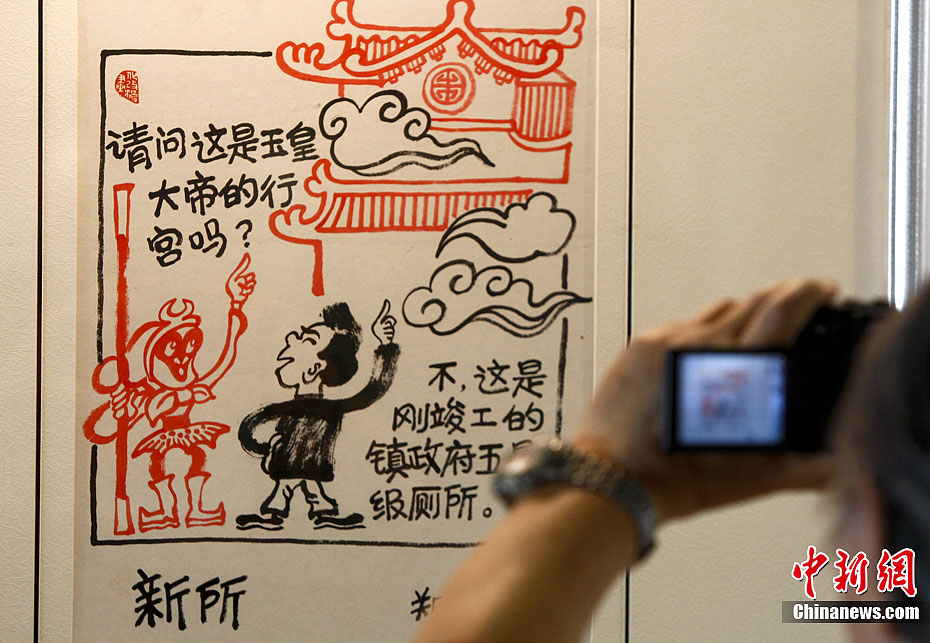 请问这是玉皇
大帝的行
宫吗？
不，这是
刚竣工的
镇政府五星
级厕所。
新所
中新网
Chinanews.com